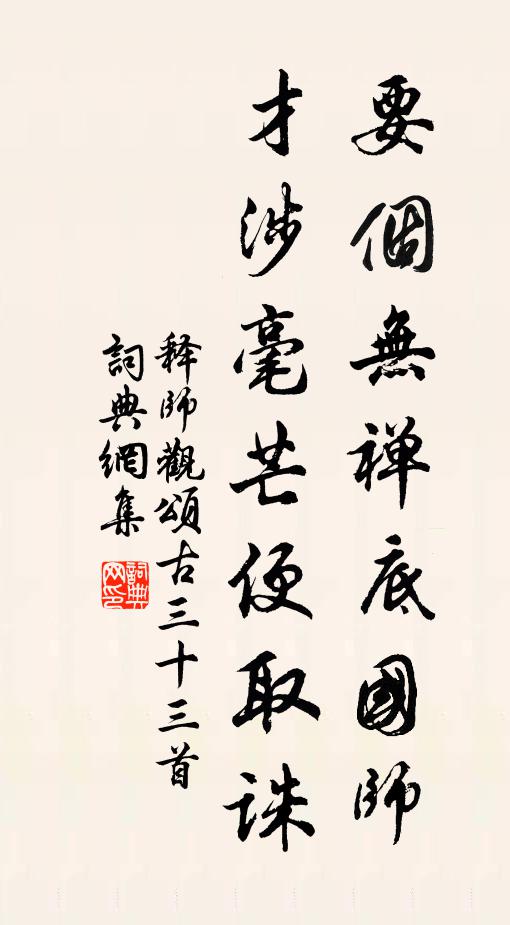 要個無禅底國师
才涉毫芒便取诛
释师觀頌古三十三首
詞典網集
詞典网印